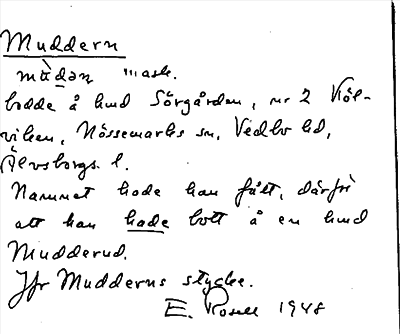 Muddern
mùdən mask.
bodde å hmd Sörgården, nr 2 Köl-
viken, Nössemarks sn, Vedbo hd,
Älvsborgs l.
Namnet hade han fått, därför
att han hade bott å en hmd
Mudderud.
Jfr Mudderns stycke.
E. Rosell 1948